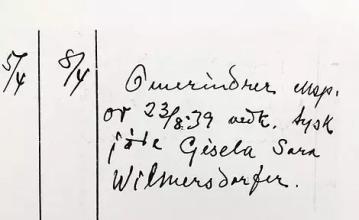 5/4 8/4
Omerindrer exp.
av 23/8-39 vedk. tysk
jøde Gisela Sara
Wilmersdorfer.